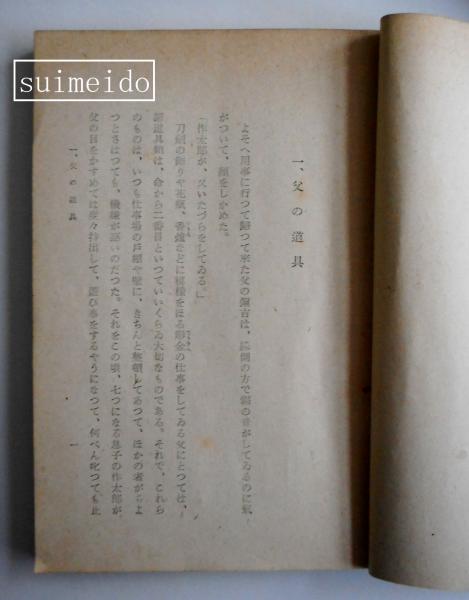 suimeido
一、父の道具
よそへ用事に行つて歸つて來た父の は、 の方で の音がしてゐるのに氣
がついて、顏をしかめた。
「作太郎が、又いたづらをしてゐる。」
刀劍の飾りや花瓶、香爐などに模樣をほる彫金の仕事をしてゐる父にとつては、
諸道具類は、命から二番目といつていいくらゐ大切なものである。それで、これら
のものは、いつも仕事場の戸棚や壁に、きちんと整頓してあつて、ほかの者がちよ
つとさはつても、機嫌が惡いのだつた。それをこの頃、七つになる息子の作太郎が、
父の目をかすめては度々持出して、遊び事をするやうになつて、何べん叱つても止
一、父の道具
一